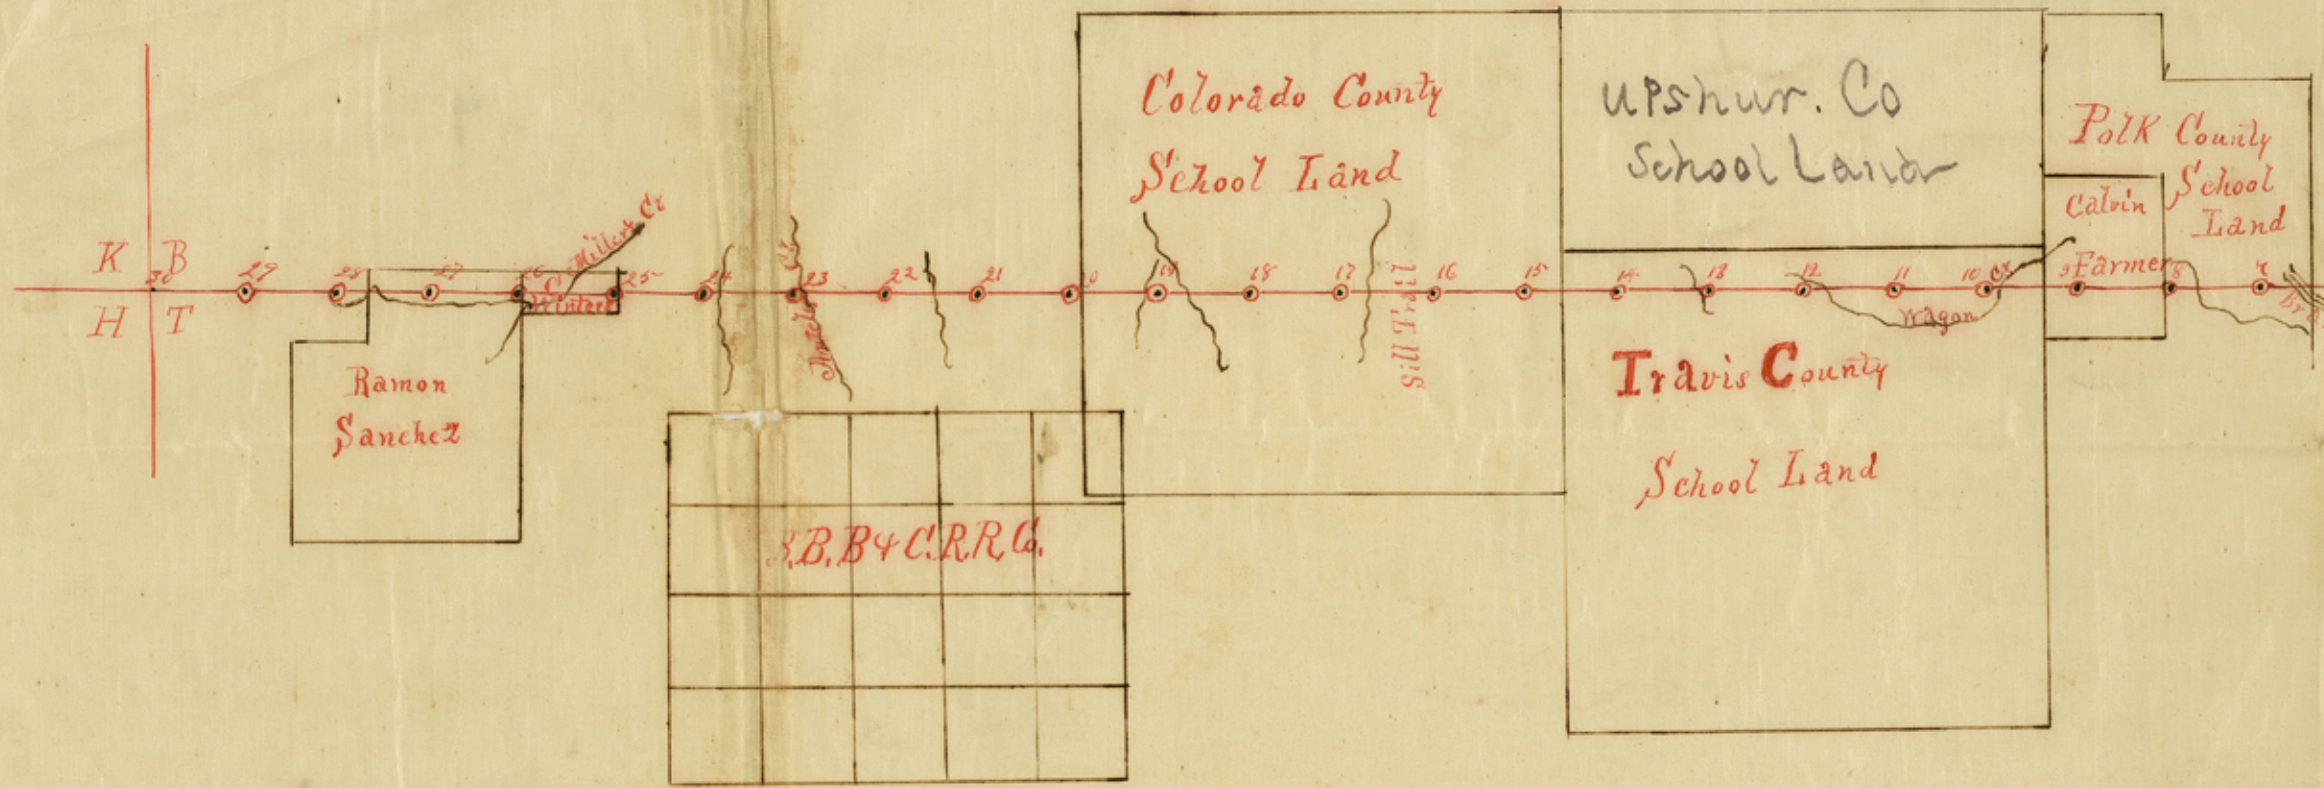 K B
H T
30
29
28
27
26
25
24
23
22
21
20
19
18
17
16
15
14
13
12
11
10
9
8
7
Millers Cr
Winters
Ramon
Sanchez
B.B.B & C.R.R. Co.
Colorado County
School Land
Sill Trail
UPshur. Co
School Land
Wagon
Cr
Travis County
School Land
Polk County
School
Land
Calvin
Farmer